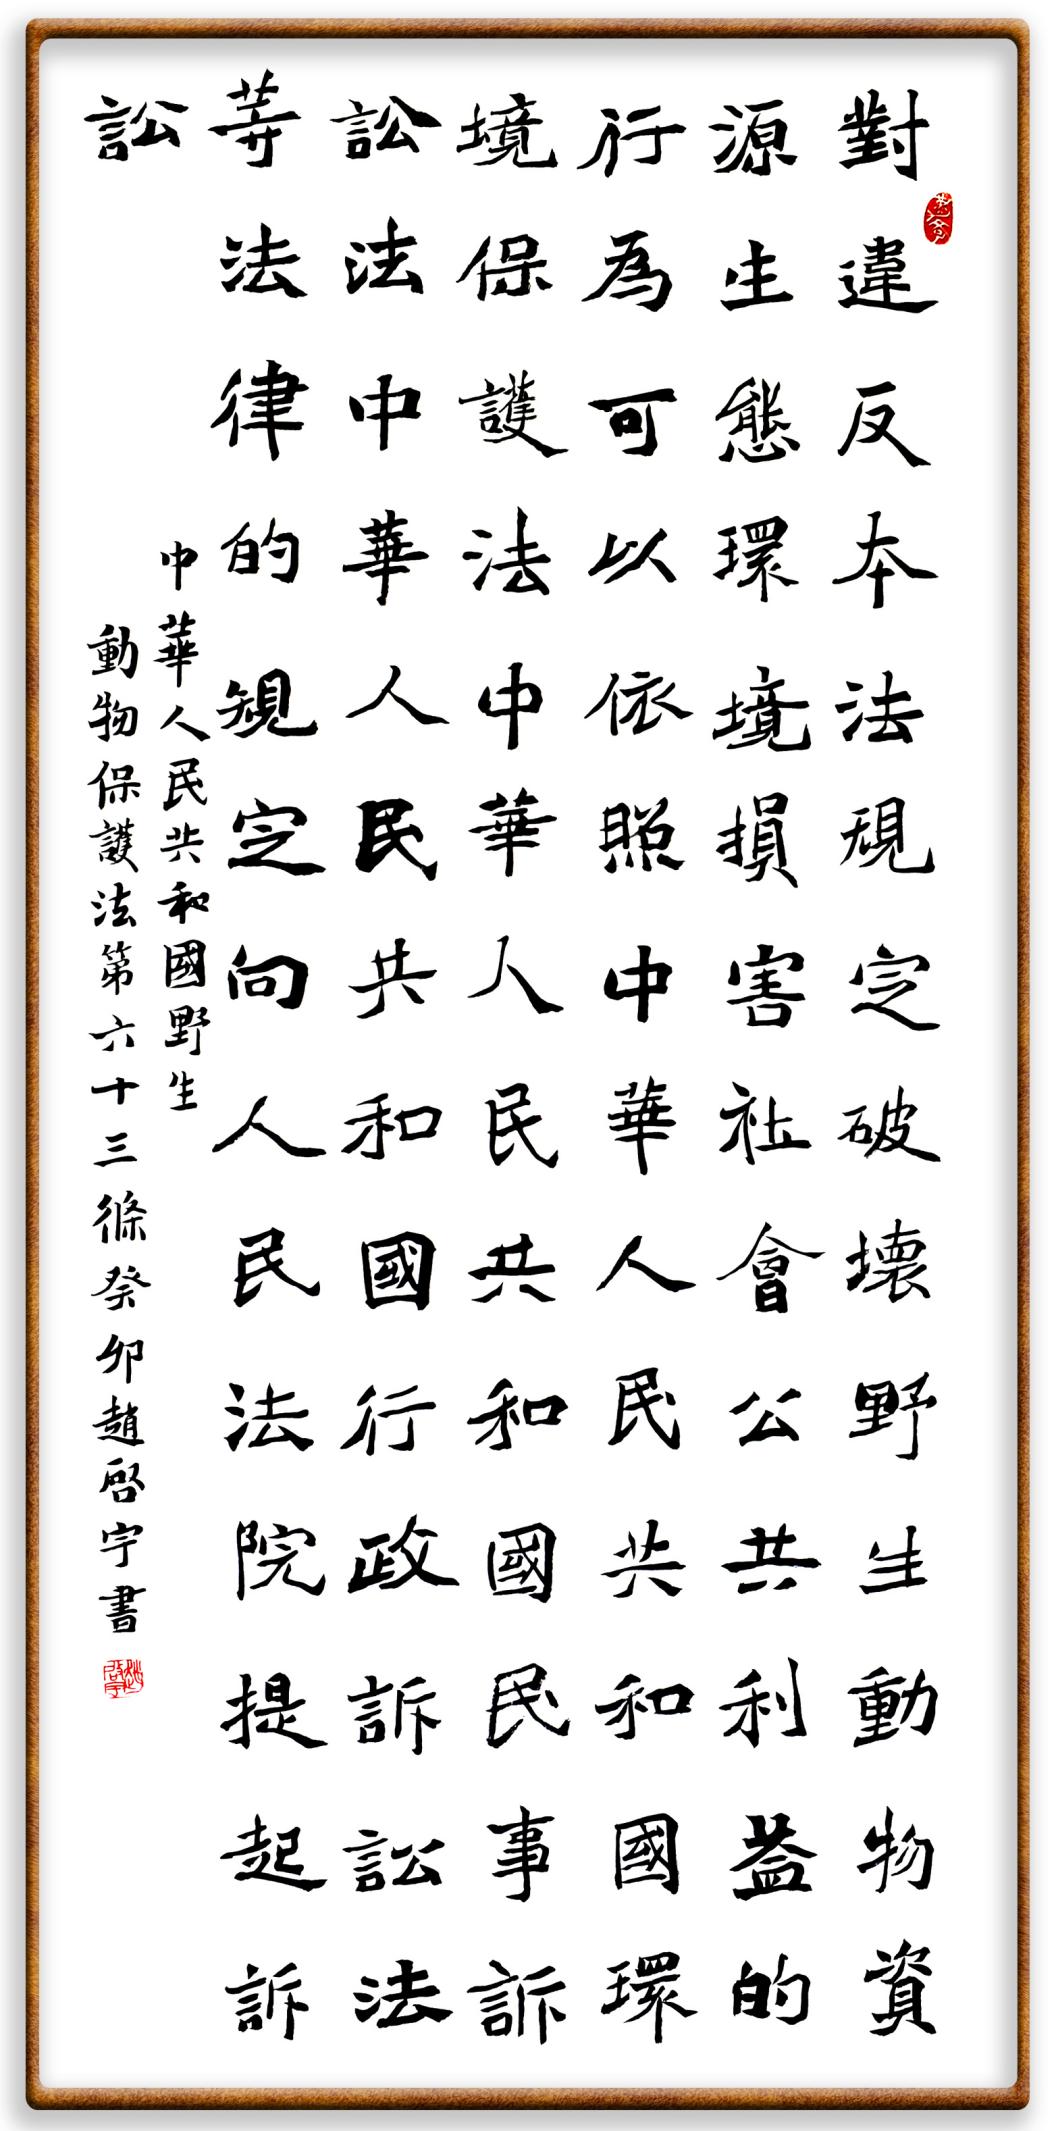 對違反本法規定破壞野生動物資
源生態環境損害社會公共利益的
行為可以依照中華人民共和國環
境保護法中華人民共和國民事訴
訟法中華人民共和國行政訴訟法
等法律的規定向人民法院提起訴
訟
中華人民共和國野生
動物保護法第六十三條癸卯趙啓宇書